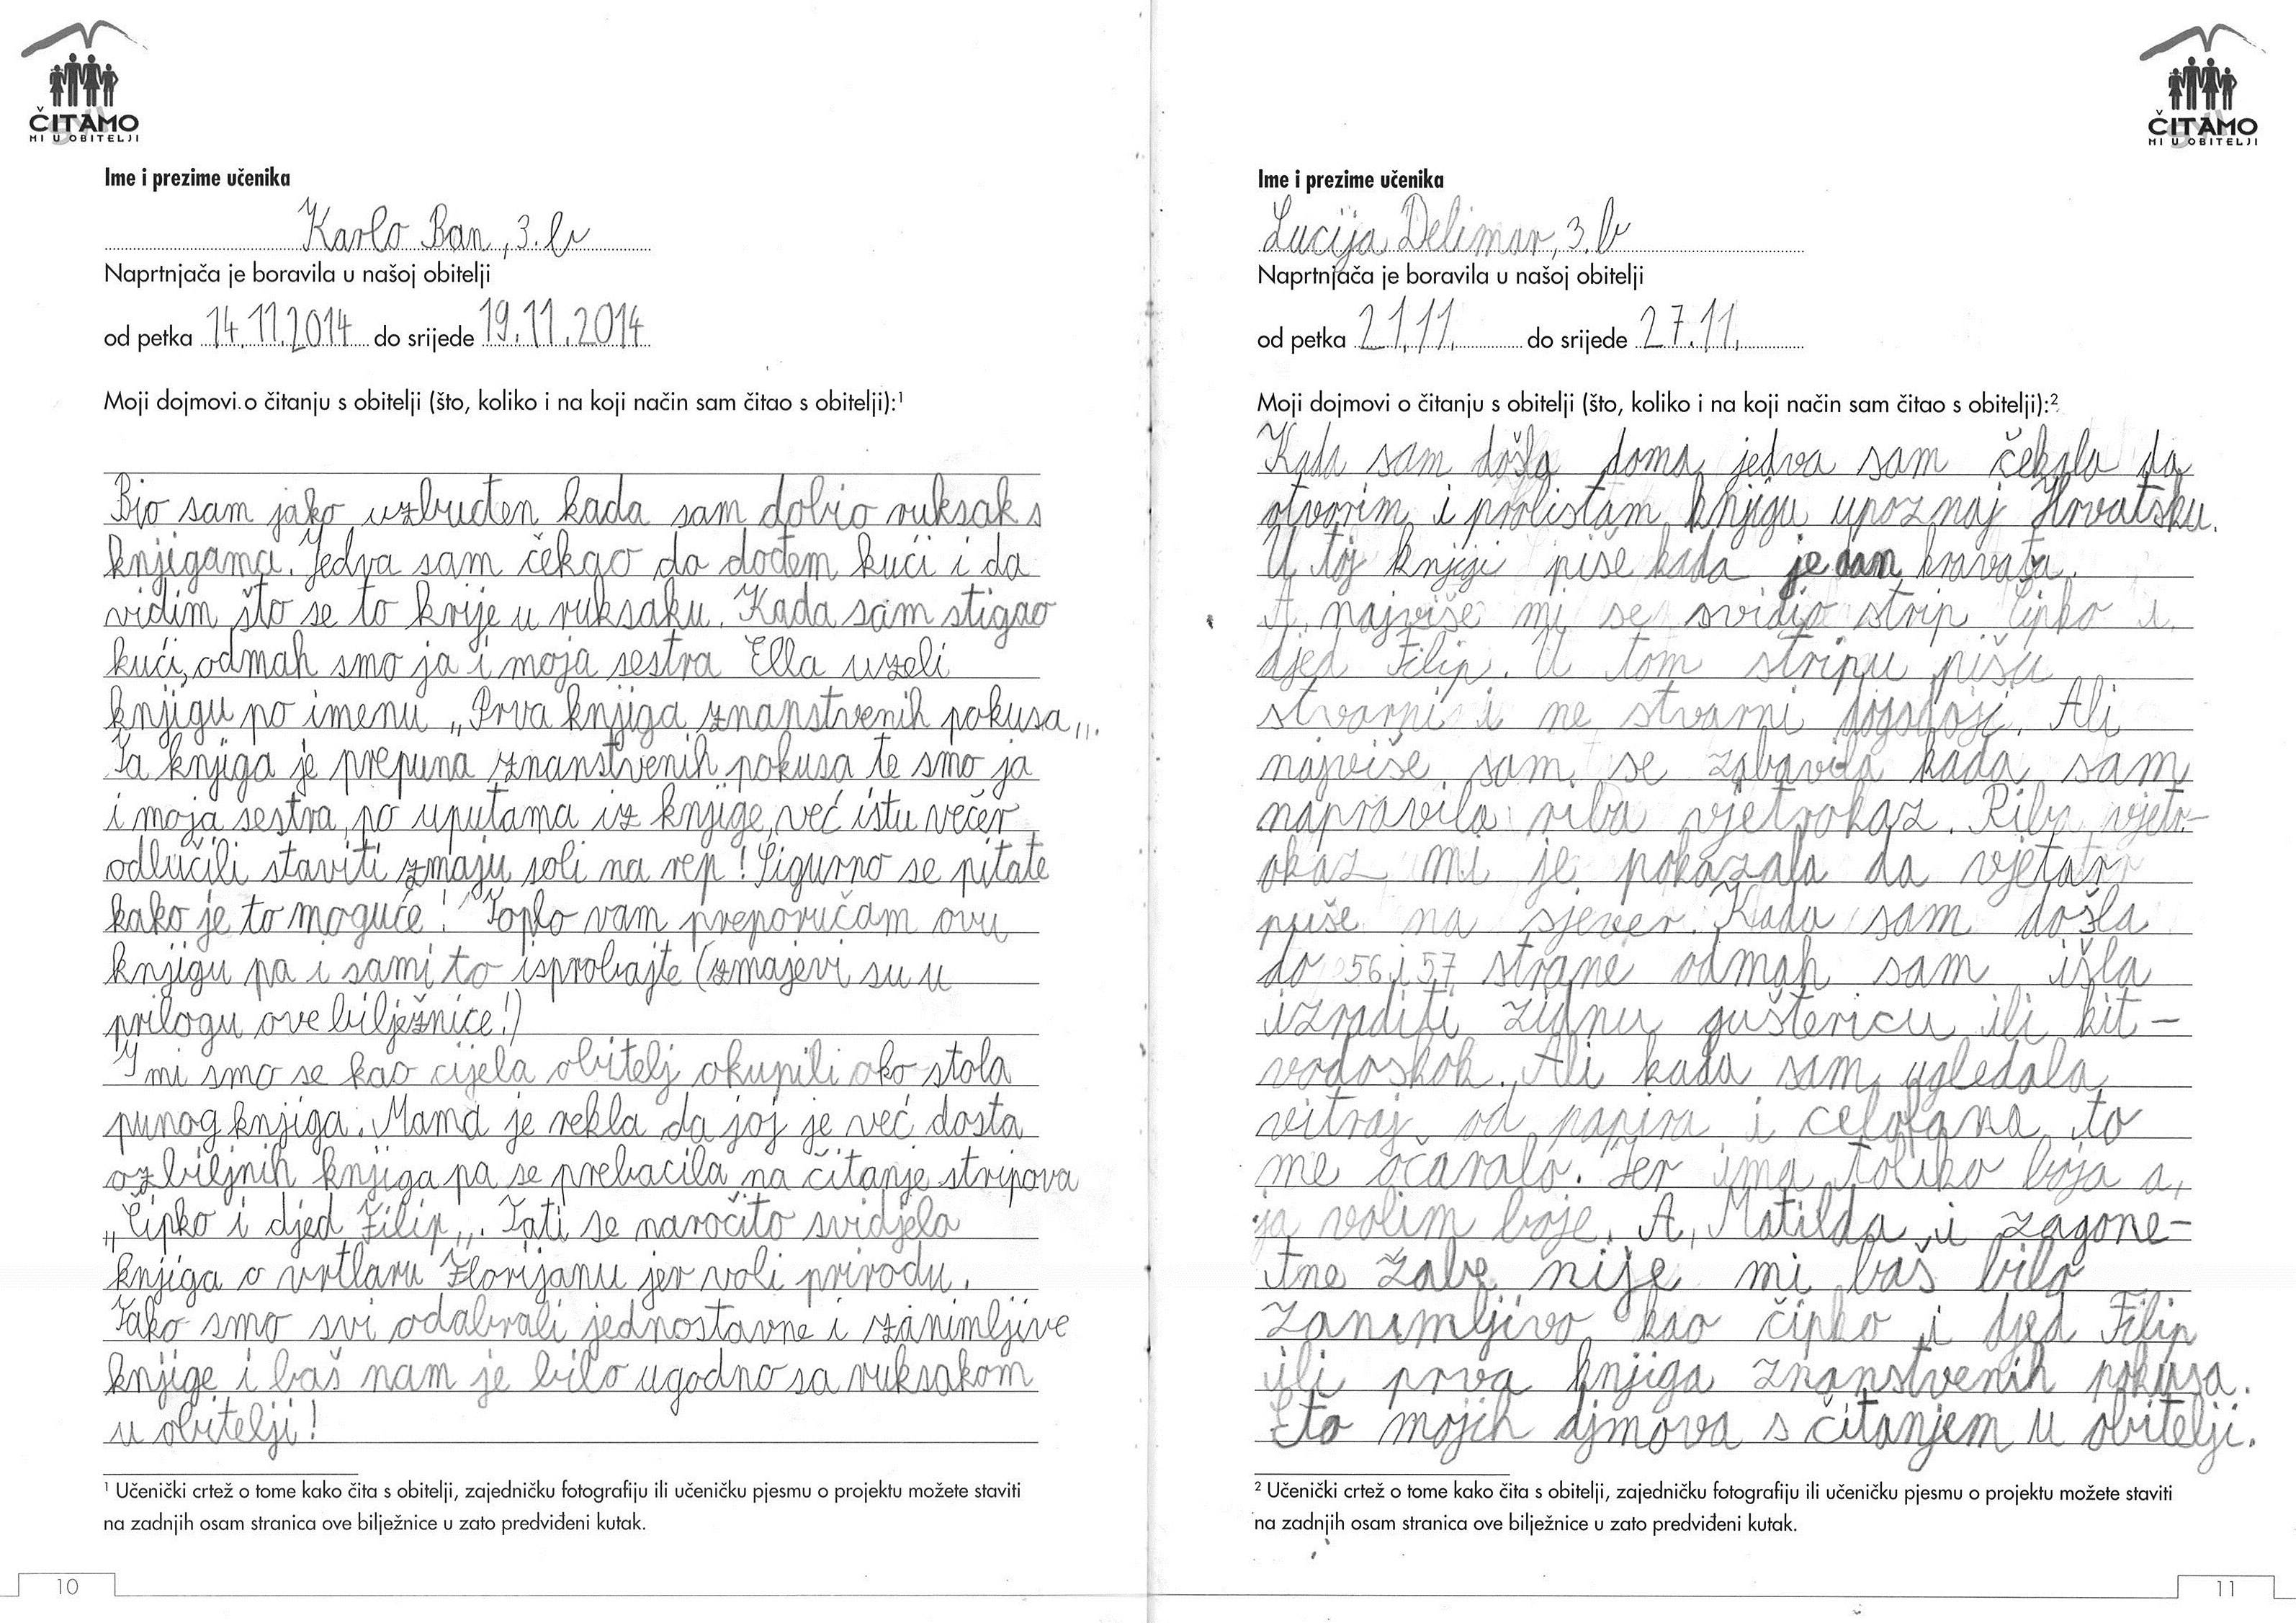 ČITAMO
MI U OBITELJI
Ime i prezime učenika
Karlo Ban, 3. b
Naprtnjača je boravila u našoj obitelji
od petka 14.11.2014 do srijede 19.11.2014
Moji dojmovi o čitanju s obitelji (što, koliko i na koji način sam čitao s obitelji):1
Bio sam jako uzbuđen kada sam dobio ruksak s
knjigama. Jedva sam čekao da dođem kući i da
vidim što se to krije u ruksaku. Kada sam stigao
kući, odmah smo ja i moja sestra Ella uzeli
knjigu po imenu „Prva knjiga znanstvenih pokusa„.
Ta knjiga je prepuna znanstvenih pokusa te smo ja
i moja sestra, po uputama iz knjige, već istu večer
odlučili staviti zmaju soli na rep! Sigurno se pitate
kako je to moguće! Toplo vam preporučam ovu
knjigu pa i sami to isprobajte (zmajevi su u
prilogu ove bilježnice!)
I mi smo se kao cijela obitelj okupili oko stola
punog knjiga. Mama je rekla da joj je već dosta
ozbiljnih knjiga pa se prebacila na čitanje stripova
„Čipko i djed Filip„. Tati se naročito svidjela
knjiga o vrtlaru Florijanu jer voli prirodu.
Tako smo svi odabrali jednostavne i zanimljive
knjige i baš nam je bilo ugodno sa ruksakom
u obitelji!
1 Učenički crtež o tome kako čita s obitelji, zajedničku fotografiju ili učeničku pjesmu o projektu možete staviti
na zadnjih osam stranica ove bilježnice u zato predviđeni kutak.
10
ČITAMO
MI U OBITELJI
Ime i prezime učenika
Lucija Delimar, 3. b
Naprtnjača je boravila u našoj obitelji
od petka 21.11. do srijede 27.11.
Moji dojmovi o čitanju s obitelji (što, koliko i na koji način sam čitao s obitelji):2
Kada sam došla doma jedva sam čekala da
otvorim i prolistam knjigu upoznaj Hrvatsku.
U toj knjigi piše kada je dan kravata.
A najviše mi se svidio strip Čipko i
djed Filip. U tom stripu pišu
stvarni i ne stvarni događaji. Ali
najviše sam se zabavila kada sam
napravila riba vjetrokaz. Riba vjetr-
okaz mi je pokazala da vjetar
puše na sjever. Kada sam došla
do 56 i 57 strane odmah sam išla
izraditi zidnu guštericu ili kit-
vodoskok. Ali kada sam ugledala
vitraj od papira i celofana to
me očaralo. Jer ima toliko boja a,
ja volim boje. A, Matilda i zagone-
tne žabe nije mi baš bilo
zanimljivo kao čipko i djed Filip
ili prva knjiga znanstvenih pokusa.
Eto mojih djmova s čitanjem u obitelji.
2 Učenički crtež o tome kako čita s obitelji, zajedničku fotografiju ili učeničku pjesmu o projektu možete staviti
na zadnjih osam stranica ove bilježnice u zato predviđeni kutak.
11